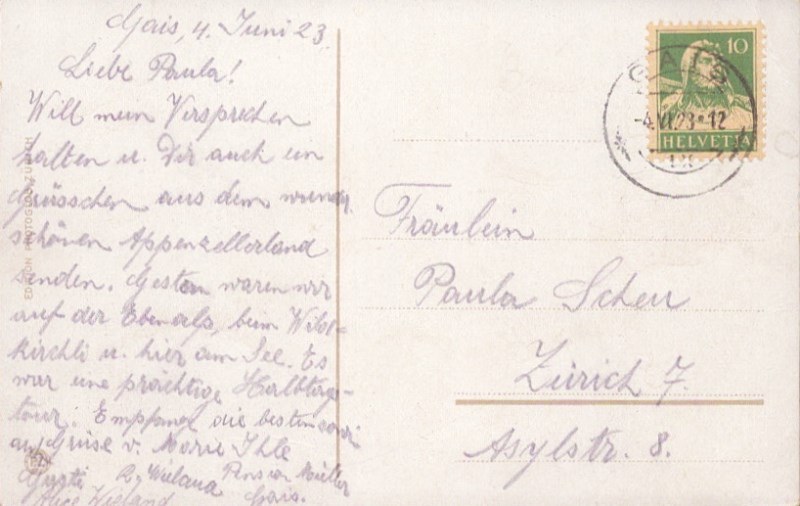 Gais, 4. Juni 23.
Liebe Paula!
Will mein Versprechen
halten u. Dir auch ein
Grüsschen aus dem wunder-
schönen Appenzellerland
senden. Gestern waren wir
auf der Ebenalp, beim Wild-
kirchli u. hier am See. Es
war eine prächtige Halbtags-
tour. Empfange die besten
Grüsse v. Marie Ihle
Gusti R. Wieland Pension Müller
Alice Wieland Gais.
10
HELVETIA
GAIS
-4.VI.23-12
Fräulein
Paula Scheu
Zürich 7.
Asylstr. 8.